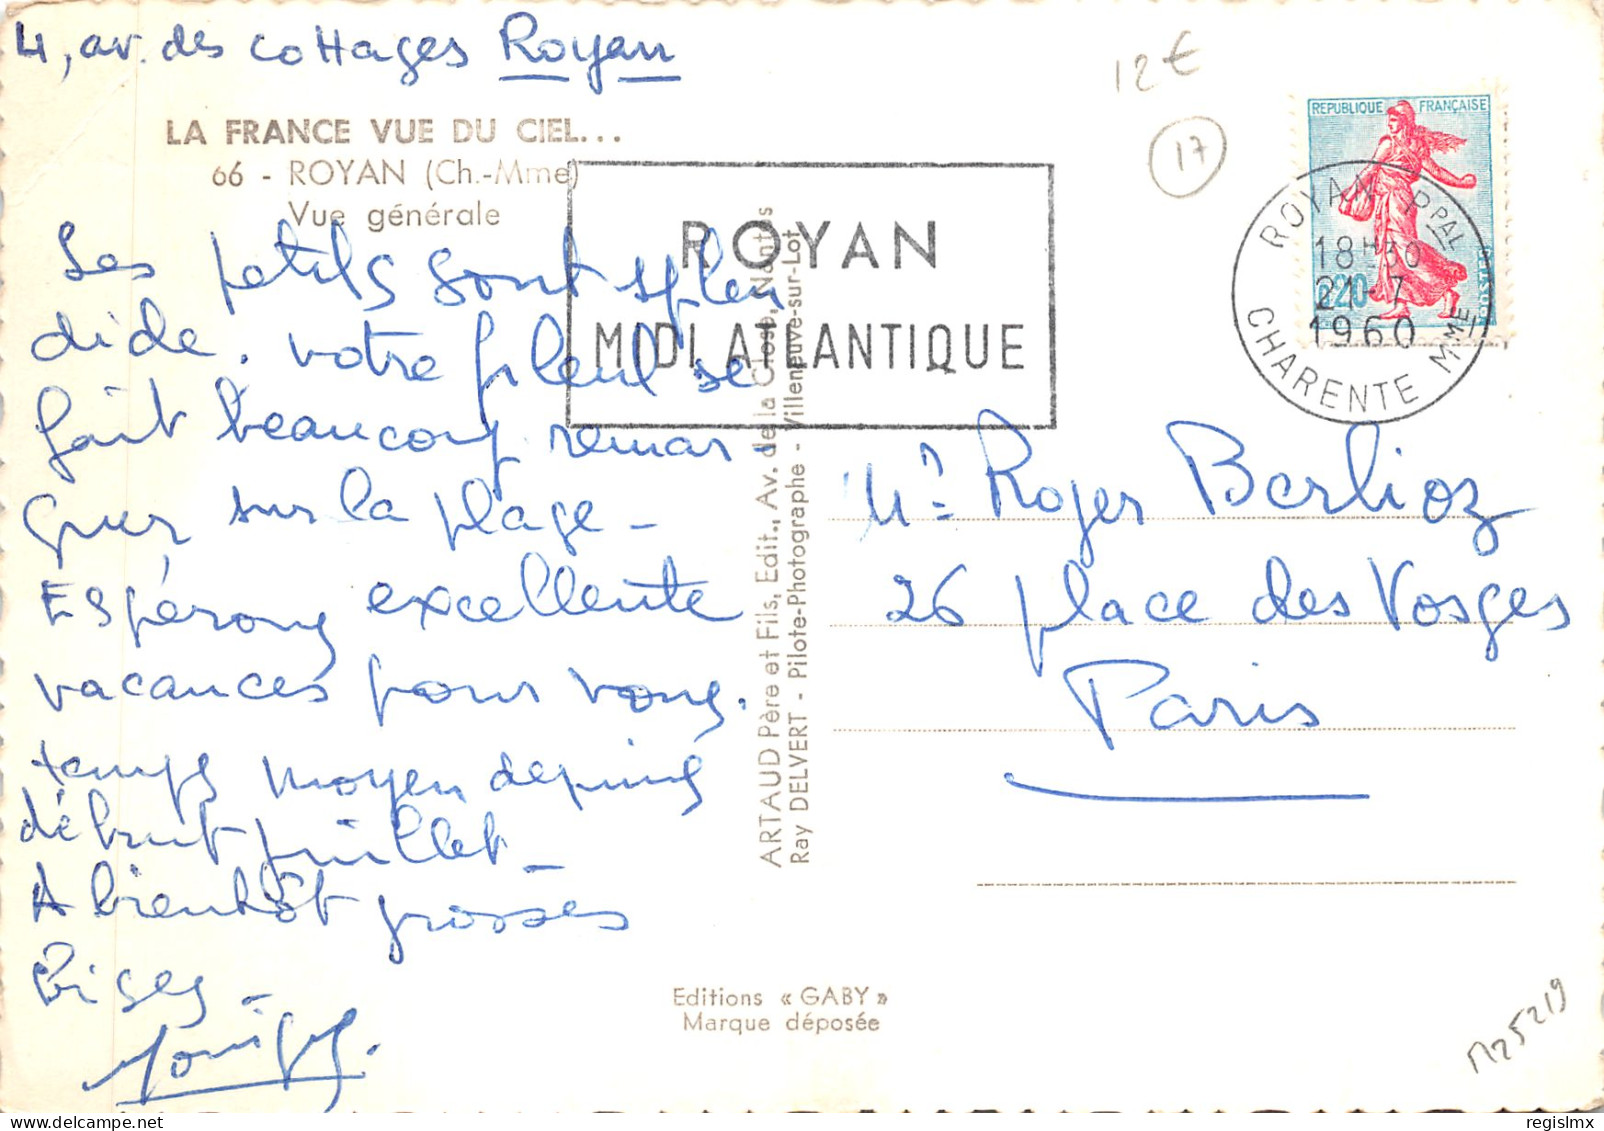 4, av. des cottages Royan
12€
17
LA FRANCE VUE DU CIEL...
66 - ROYAN (Ch.-Mme)
Vue générale
REPUBLIQUE FRANÇAISE
0,20
ROYAN PPAL
18H30
21-7
1960
CHARENTE MME
ROYAN
MIDI ATLANTIQUE
Les petits sont splen
dide. votre filleul se
fait beaucoup remar
quer sur la plage -
Espérons excellente
vacances pour vous.
temps moyen depuis
début juillet -
A bientôt grosses
Bises -
Mr Roger Berlioz
26 place des Vosges
Paris
ARTAUD Père et Fils, Edit., Av. de la Close, Nantes
Ray DELVERT - Pilote-Photographe - Villeneuve-sur-Lot
Editions « GABY »
Marque déposée
M25219
regislmx